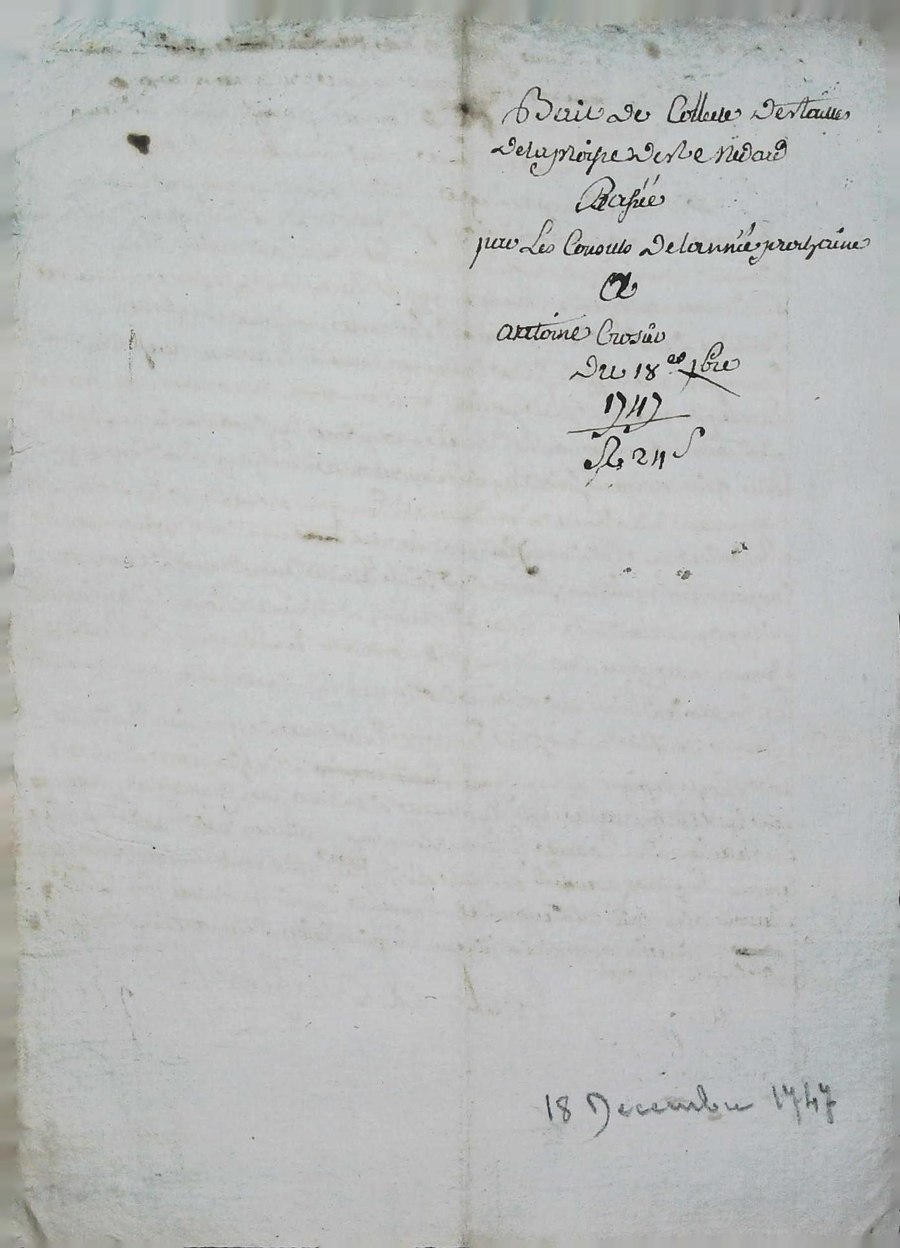 Bail de Collecte des tailles
de la paroisse de St Medard
Passée
par Les Consuls de lannée prochaine
A
antoine Crosur
Du 18 xbre
1747
24 s
18 Decembre 1747